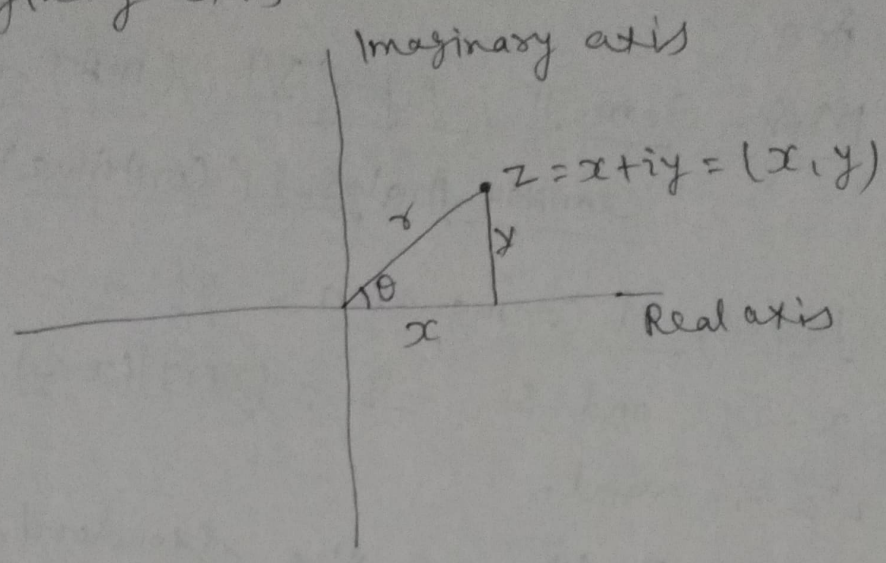 Imaginary axis
z = x+iy = (x, y)
r
y
θ
x
Real axis